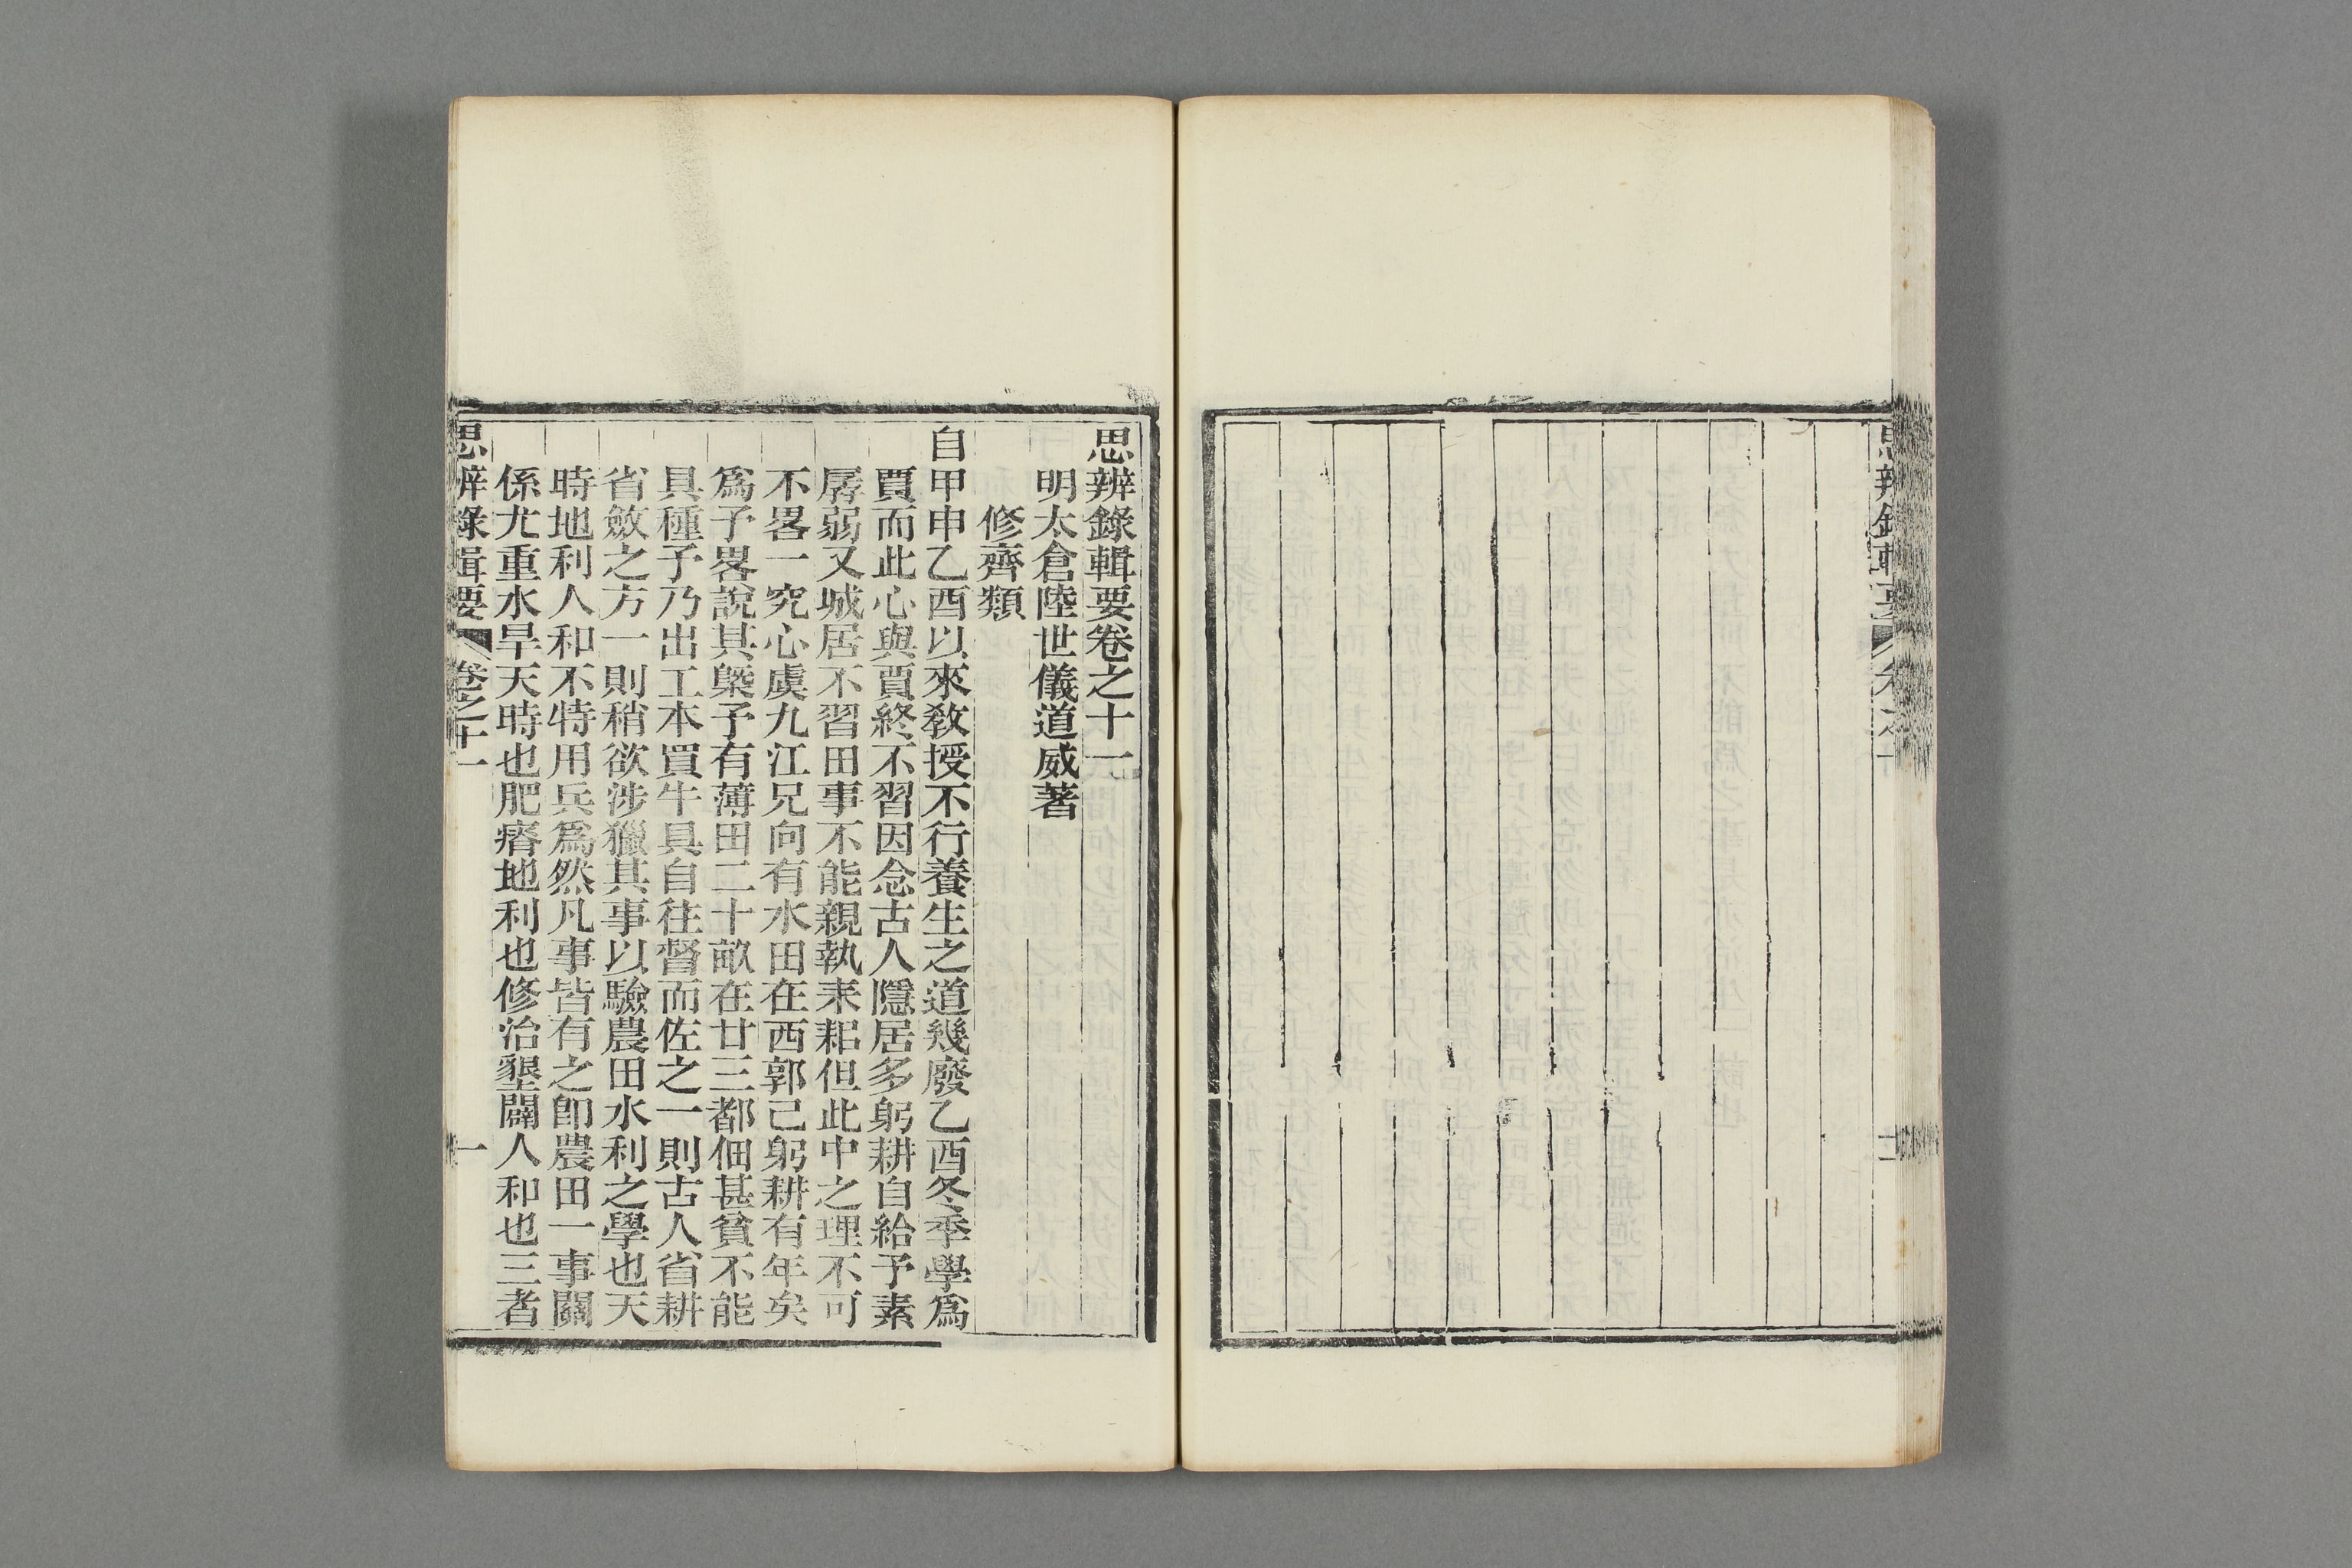 思辨錄輯要卷之十一
明太倉陸世儀道威著
修齊類
自甲申乙酉以來敎授不行養生之道幾廢乙酉冬季學爲
賈而此心與賈終不習因念古人隱居多躬耕自給予素
孱弱又城居不習田事不能親執耒耜但此中之理不可
不畧一究心虞九江兄向有水田在西郭己躬耕有年矣
爲予畧說其槩予有薄田二十畝在廿三都佃甚貧不能
具種予乃出工本買牛具自往督而佐之一則古人省耕
省斂之方一則稍欲涉獵其事以驗農田水利之學也天
時地利人和不特用兵爲然凡事皆有之卽農田一事關
係尤重水旱天時也肥瘠地利也修治墾闢人和也三者
思辨錄輯要 卷之十一 一